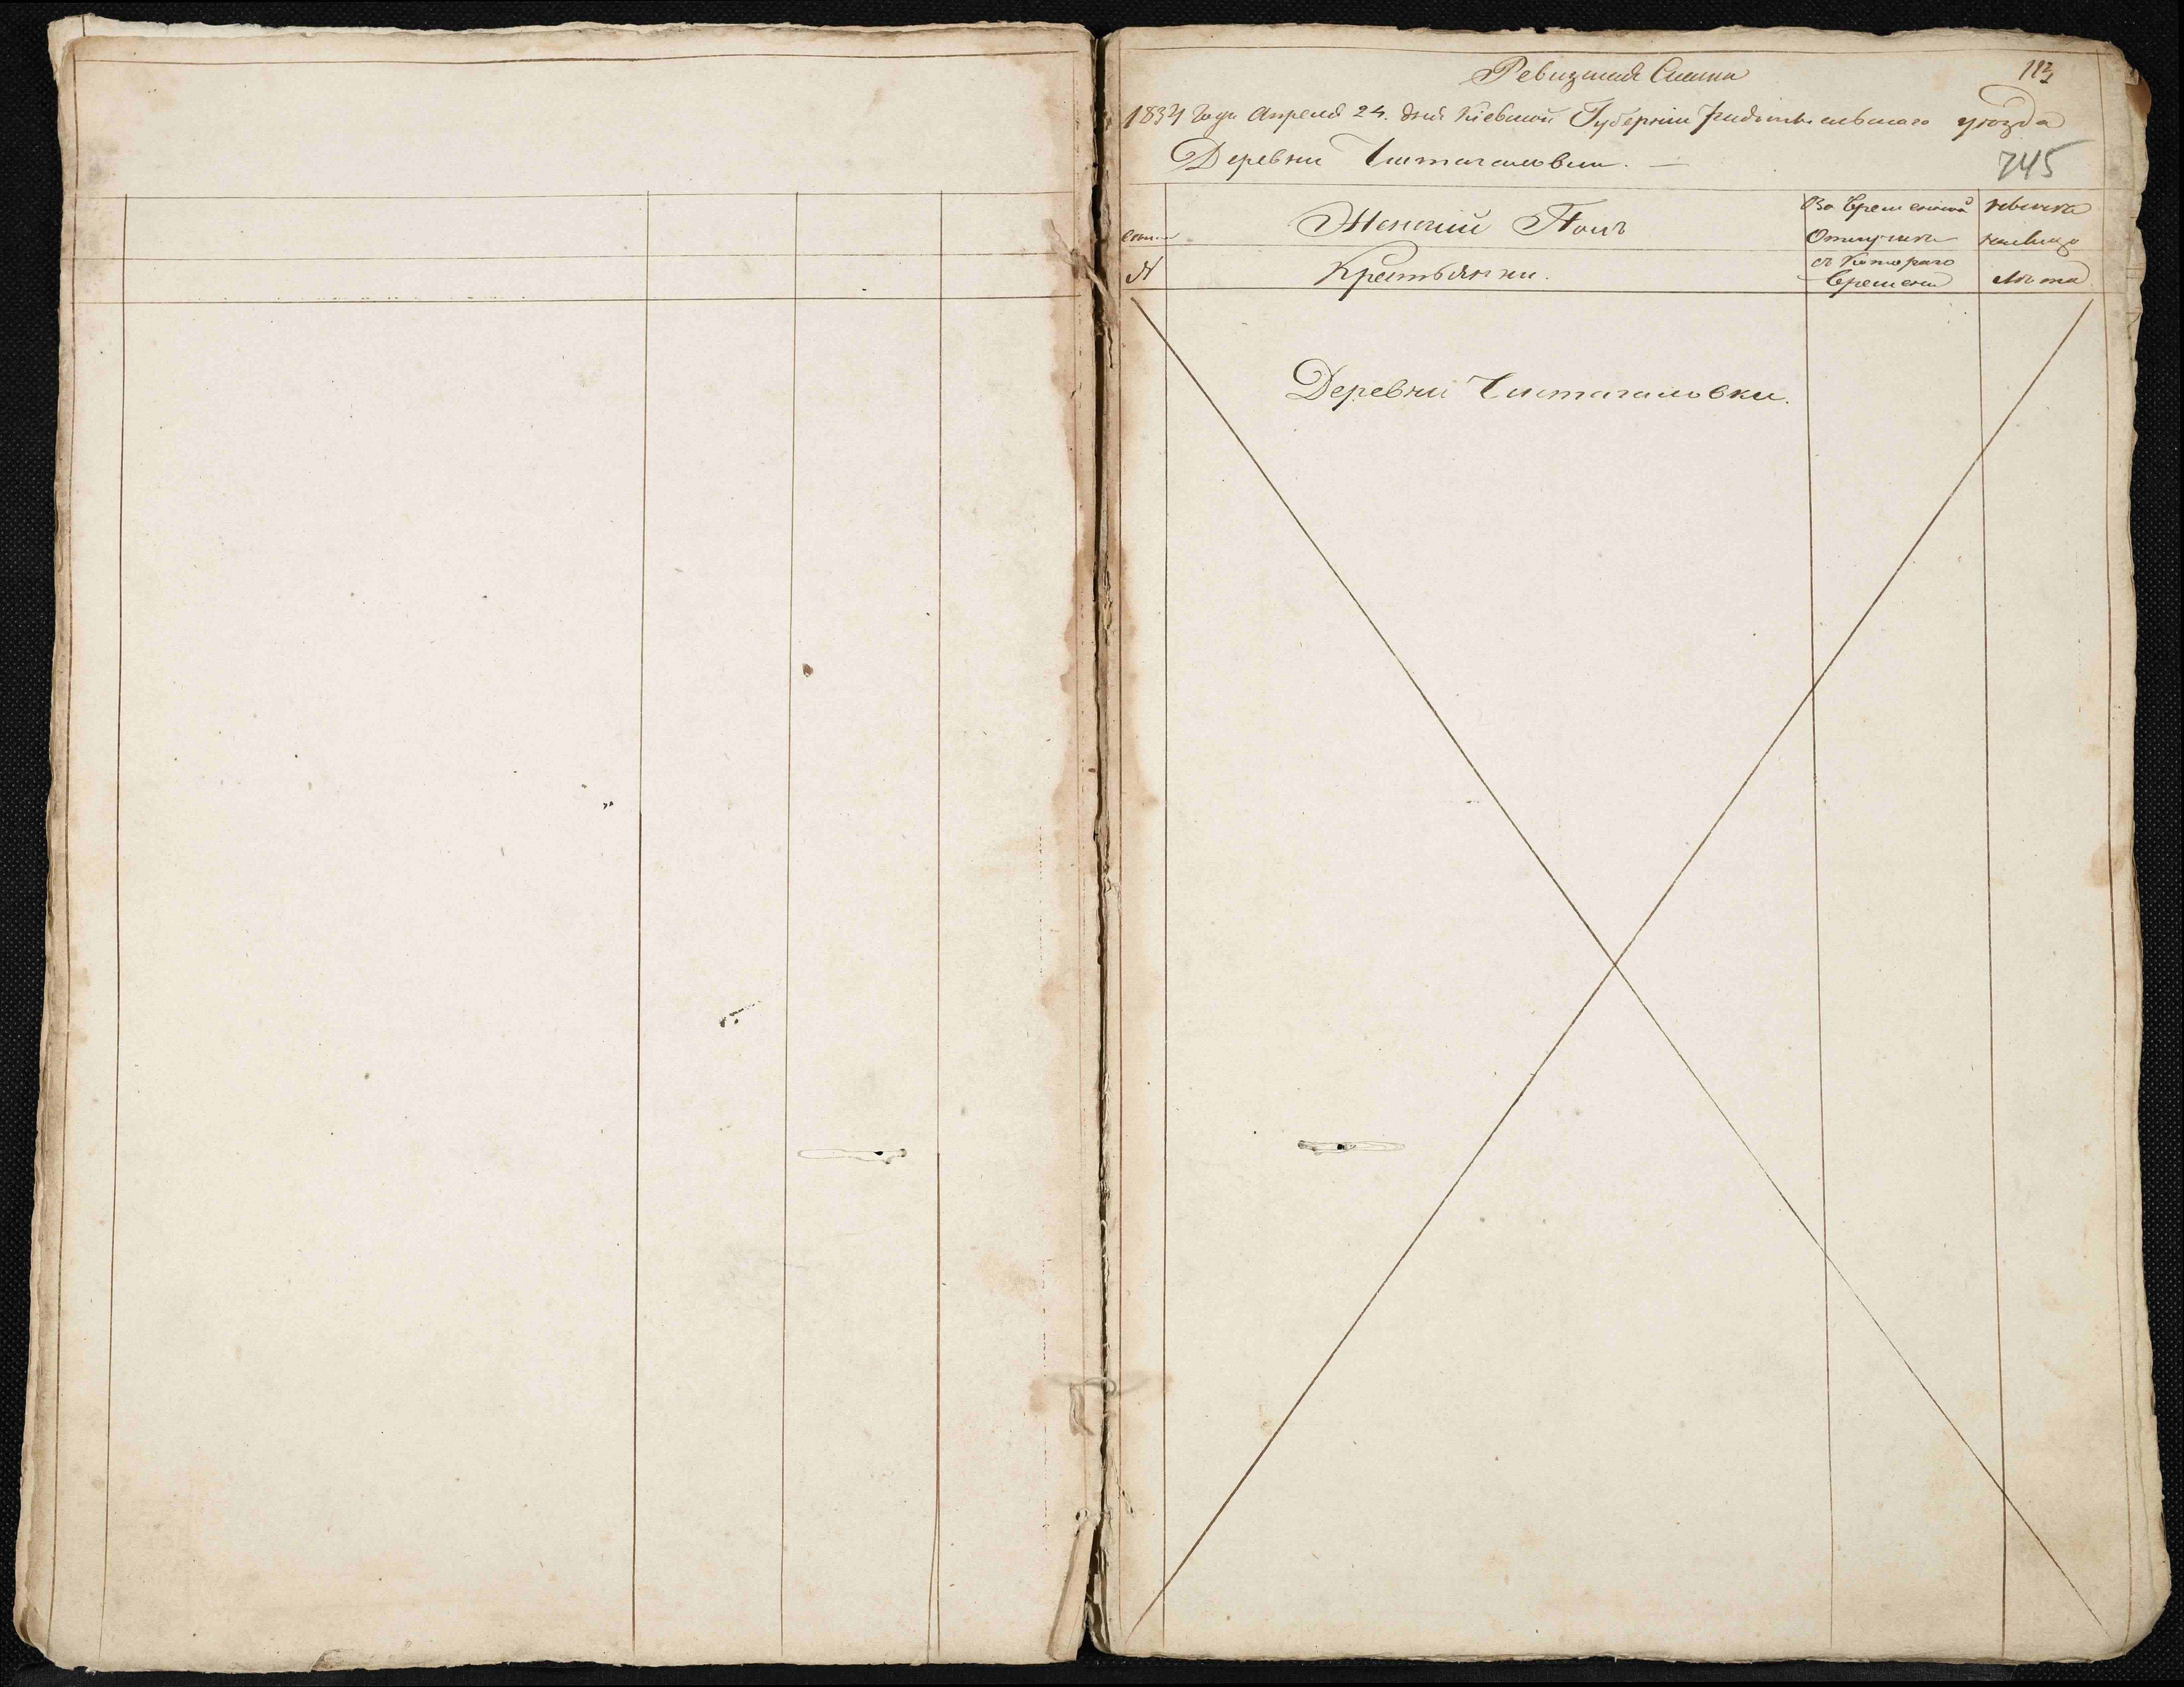 Ревизская Сказка
113
1834 года Апреля 24. дня Кіевской Губерніи Радомысльскаго уѣзда
Деревни Чистагаловки. —
745
Женскій Полъ
Во временной
отлучкѣ
нынѣ на
лицо
семьи
№
Крестьянки.
съ котораго
времени
Лѣта
Деревни Чистагаловки.